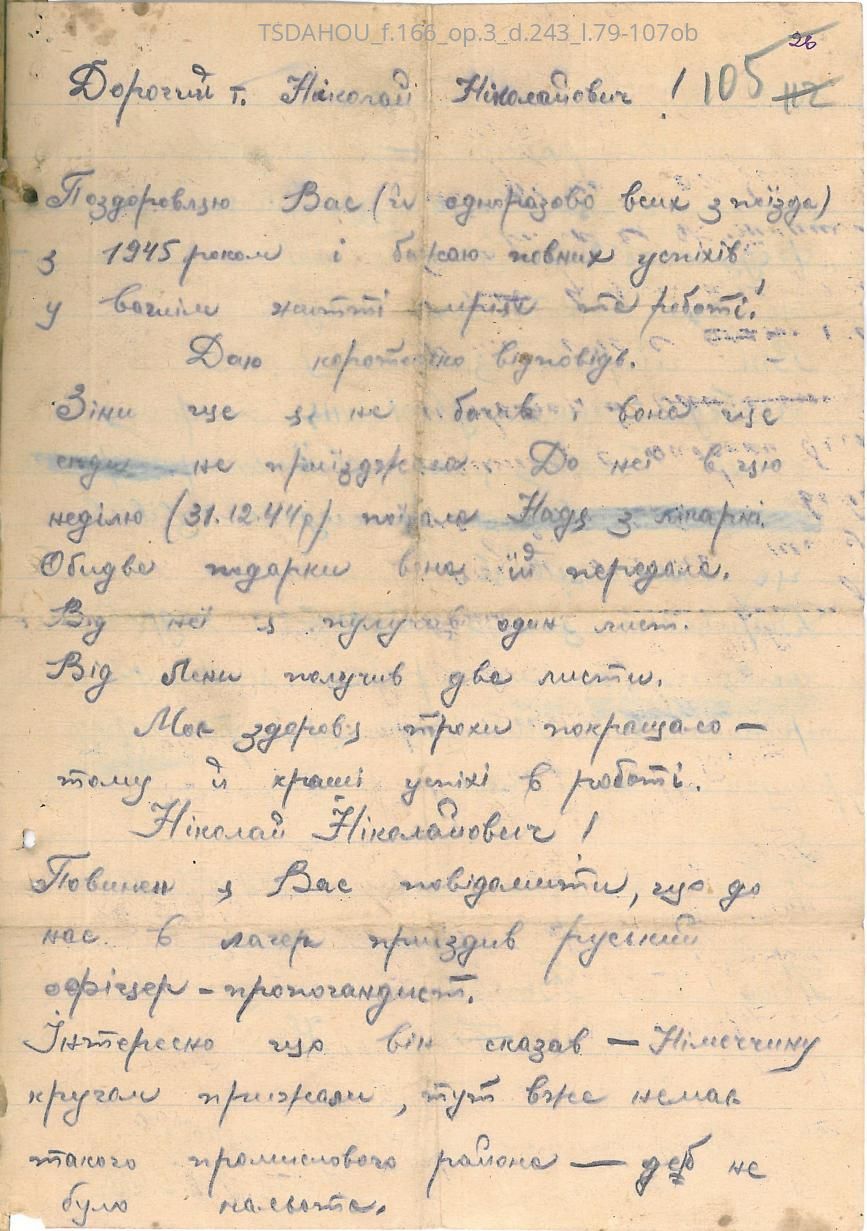 TSDAHOU_f.166_op.3_d.243_l.79-107ob
26
Дорогий т. Ніколай Ніколайович ! 105 112
Поздоровляю Вас (й одноразово всих з поїзда)
з 1945 роком і бажаю повних успіхів
у вашім житті мрія та роботі!
Даю коротенько відповідь.
Зіни ще я не бачив і вона ще
сюди не приїзджала. До неї в цю
неділю (31.12.44р) поїхала Надя з лікарні.
Обидва подарки вона їй передала.
Від неї я пулучив один лист.
Від Лени получив два листи.
Моє здоровя трохи покращало —
тому й кращі успіхі в роботі.
Ніколай Ніколайович !
Повинен я Вас повідомити, що до
нас в лагер приїздив руський
офіцер – пропогандист.
Інтересно що він сказав — Німеччину
кругом прижали, тут вже немає
такого промислового района — де б не
було нальота.